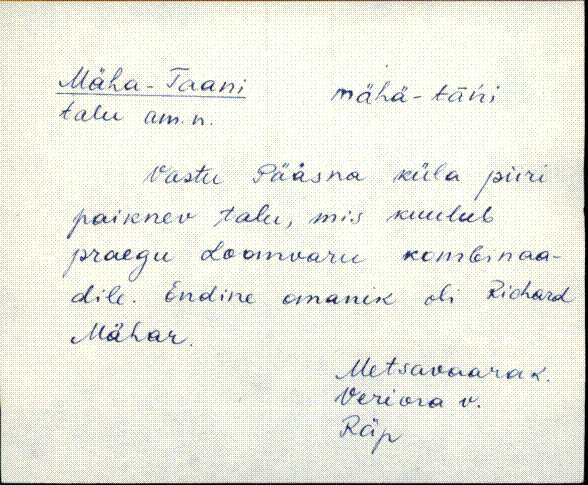 Mäha-Taani mähä-tāńi
talu am.n.
Vastu Pääsna küla piiri
paiknev talu, mis kuulub
praegu Loomvaru kombinaa-
dile. Endine omanik oli Richard
Mähar.
Metsavaara k.
Veriora v.
Räp